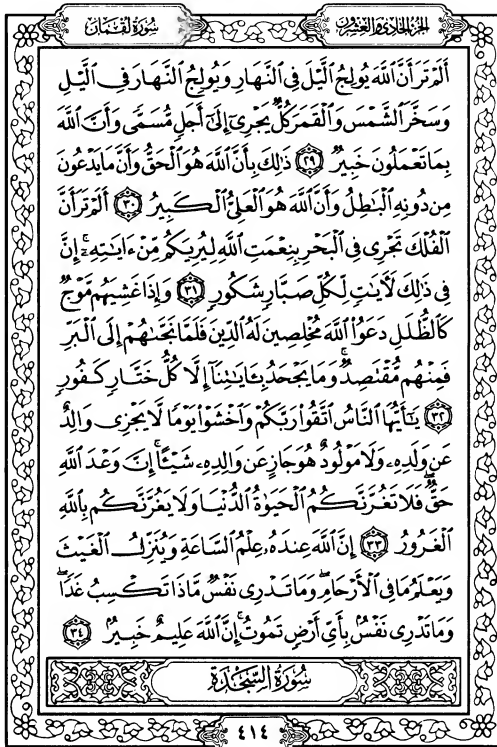 الجُزْءُ الحَادِي وَالعِشْرُونَ
سُورَةُ لُقْمَان
أَلَمْ تَرَ أَنَّ ٱللَّهَ يُولِجُ ٱلَّيْلَ فِى ٱلنَّهَارِ وَيُولِجُ ٱلنَّهَارَ فِى ٱلَّيْلِ
وَسَخَّرَ ٱلشَّمْسَ وَٱلْقَمَرَ كُلٌّ يَجْرِىٓ إِلَىٰٓ أَجَلٍ مُّسَمًّى وَأَنَّ ٱللَّهَ
بِمَا تَعْمَلُونَ خَبِيرٌ ٢٩ ذَٰلِكَ بِأَنَّ ٱللَّهَ هُوَ ٱلْحَقُّ وَأَنَّ مَا يَدْعُونَ
مِن دُونِهِ ٱلْبَٰطِلُ وَأَنَّ ٱللَّهَ هُوَ ٱلْعَلِىُّ ٱلْكَبِيرُ ٣٠ أَلَمْ تَرَ أَنَّ
ٱلْفُلْكَ تَجْرِى فِى ٱلْبَحْرِ بِنِعْمَتِ ٱللَّهِ لِيُرِيَكُم مِّنْ ءَايَٰتِهِۦٓ ۚ إِنَّ
فِى ذَٰلِكَ لَأٓيَٰتٍ لِّكُلِّ صَبَّارٍ شَكُورٍ ٣١ وَإِذَا غَشِيَهُم مَّوْجٌ
كَٱلظُّلَلِ دَعَوُا۟ ٱللَّهَ مُخْلِصِينَ لَهُ ٱلدِّينَ فَلَمَّا نَجَّىٰهُمْ إِلَى ٱلْبَرِّ
فَمِنْهُم مُّقْتَصِدٌ ۚ وَمَا يَجْحَدُ بِـَٔايَٰتِنَآ إِلَّا كُلُّ خَتَّارٍ كَفُورٍ
٣٢ يَٰٓأَيُّهَا ٱلنَّاسُ ٱتَّقُوا۟ رَبَّكُمْ وَٱخْشَوْا۟ يَوْمًا لَّا يَجْزِى وَالِدٌ
عَن وَلَدِهِۦ وَلَا مَوْلُودٌ هُوَ جَازٍ عَن وَالِدِهِۦ شَيْـًٔا ۚ إِنَّ وَعْدَ ٱللَّهِ
حَقٌّ ۖ فَلَا تَغُرَّنَّكُمُ ٱلْحَيَوٰةُ ٱلدُّنْيَا وَلَا يَغُرَّنَّكُم بِٱللَّهِ
ٱلْغَرُورُ ٣٣ إِنَّ ٱللَّهَ عِندَهُۥ عِلْمُ ٱلسَّاعَةِ وَيُنَزِّلُ ٱلْغَيْثَ
وَيَعْلَمُ مَا فِى ٱلْأَرْحَامِ ۖ وَمَا تَدْرِى نَفْسٌ مَّاذَا تَكْسِبُ غَدًا ۖ
وَمَا تَدْرِى نَفْسٌۢ بِأَىِّ أَرْضٍ تَمُوتُ ۚ إِنَّ ٱللَّهَ عَلِيمٌ خَبِيرٌۢ ٣٤
سُورَةُ السَّجْدَةِ
٤١٤